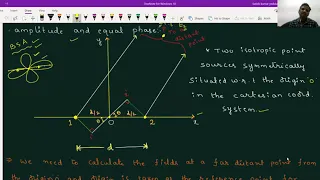 amplitude and equal phase:
distant
point
BSA
y
* Two isotropic point
sources symmetrically
situated w.r.t the origin 'o'
in the cartesian coord.
system.
r
d/2 d/2
θ θ
1 0 2 x
d
⇒ we need to calculate the fields at a far distant point from
the origin and origin is taken as the reference point for